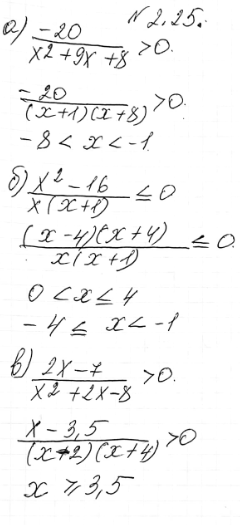 № 2.25.
а) -20/(x²+9x+8) > 0.
-20/((x+1)(x+8)) > 0.
-8 < x < -1
б) (x²-16)/(x(x+1)) ≤ 0
((x-4)(x+4))/(x(x+1)) ≤ 0
0 < x ≤ 4
-4 ≤ x < -1
в) (2x-7)/(x²+2x-8) > 0.
(x-3,5)/((x-2)(x+4)) > 0
x ≥ 3,5